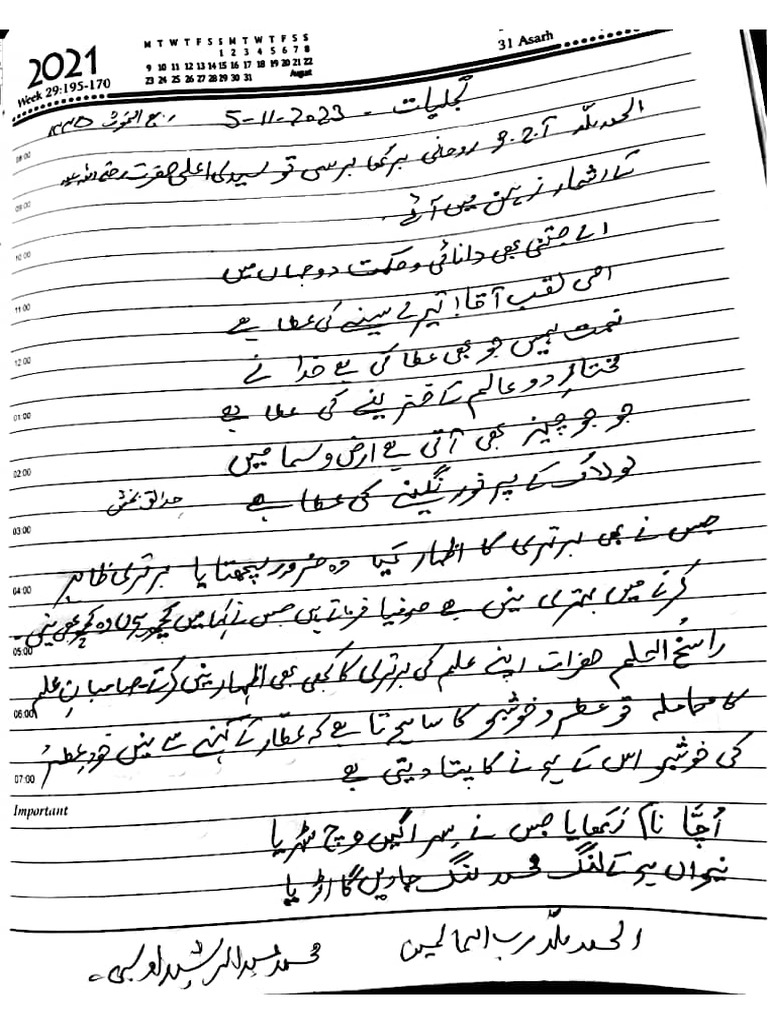 2021
Week 29:195-170
M T W T F S S M T W T F S S
1 2 3 4 5 6 7 8
9 10 11 12 13 14 15 16 17 18 19 20 21 22
23 24 25 26 27 28 29 30 31 August
31 Asarh
تجلیات - 5-11-2023
الحمدللہ آج جو روحانی برکھا برسی تو سیدی اعلی حضرت رحمۃ اللہ علیہ
کے اشعار ذہن میں آئے
ہے جتنی بھی دانائی و حکمت دو جہاں میں
امی لقب آقا! تیرے سینے کی عطا ہے
نعمت ہمیں جو بھی عطا کی ہے خدا نے
مختارِ دو عالم کے قرینے کی عطا ہے
جو جو چیز بھی آتی ہے ارض و سما میں
لولاک کے پر نور نگینے کی عطا ہے حدائق بخشش
جس نے بھی برتری کا اظہار کیا وہ ضرور پچھتایا برتری ظاہر
کرنے میں بہتری نہیں ہے صوفیا فرماتے ہیں جس نے کہا میں کچھ ہوں وہ کچھ بھی نہیں -
راسخُ العلم حضرات اپنے علم کی برتری کا کبھی بھی اظہار نہیں کرتے صاحبانِ علم
کا معاملہ تو عطر و خوشبو کا سا ہوتا ہے کہ عطار کے کہنے سے نہیں خود عطر
کی خوشبو اس کے ہونے کا پتا دیتی ہے
اُچّا نام رَکھایا جس نے سِر اگیں وچ سڑیا
نیواں ہو کے لنگ محمد لنگ جاویں گا اڑیا
الحمدللہ رب العالمین
محمد عبدالرشید اویسی
08:00
09:00
10:00
11:00
12:00
01:00
02:00
03:00
04:00
05:00
06:00
07:00
Important